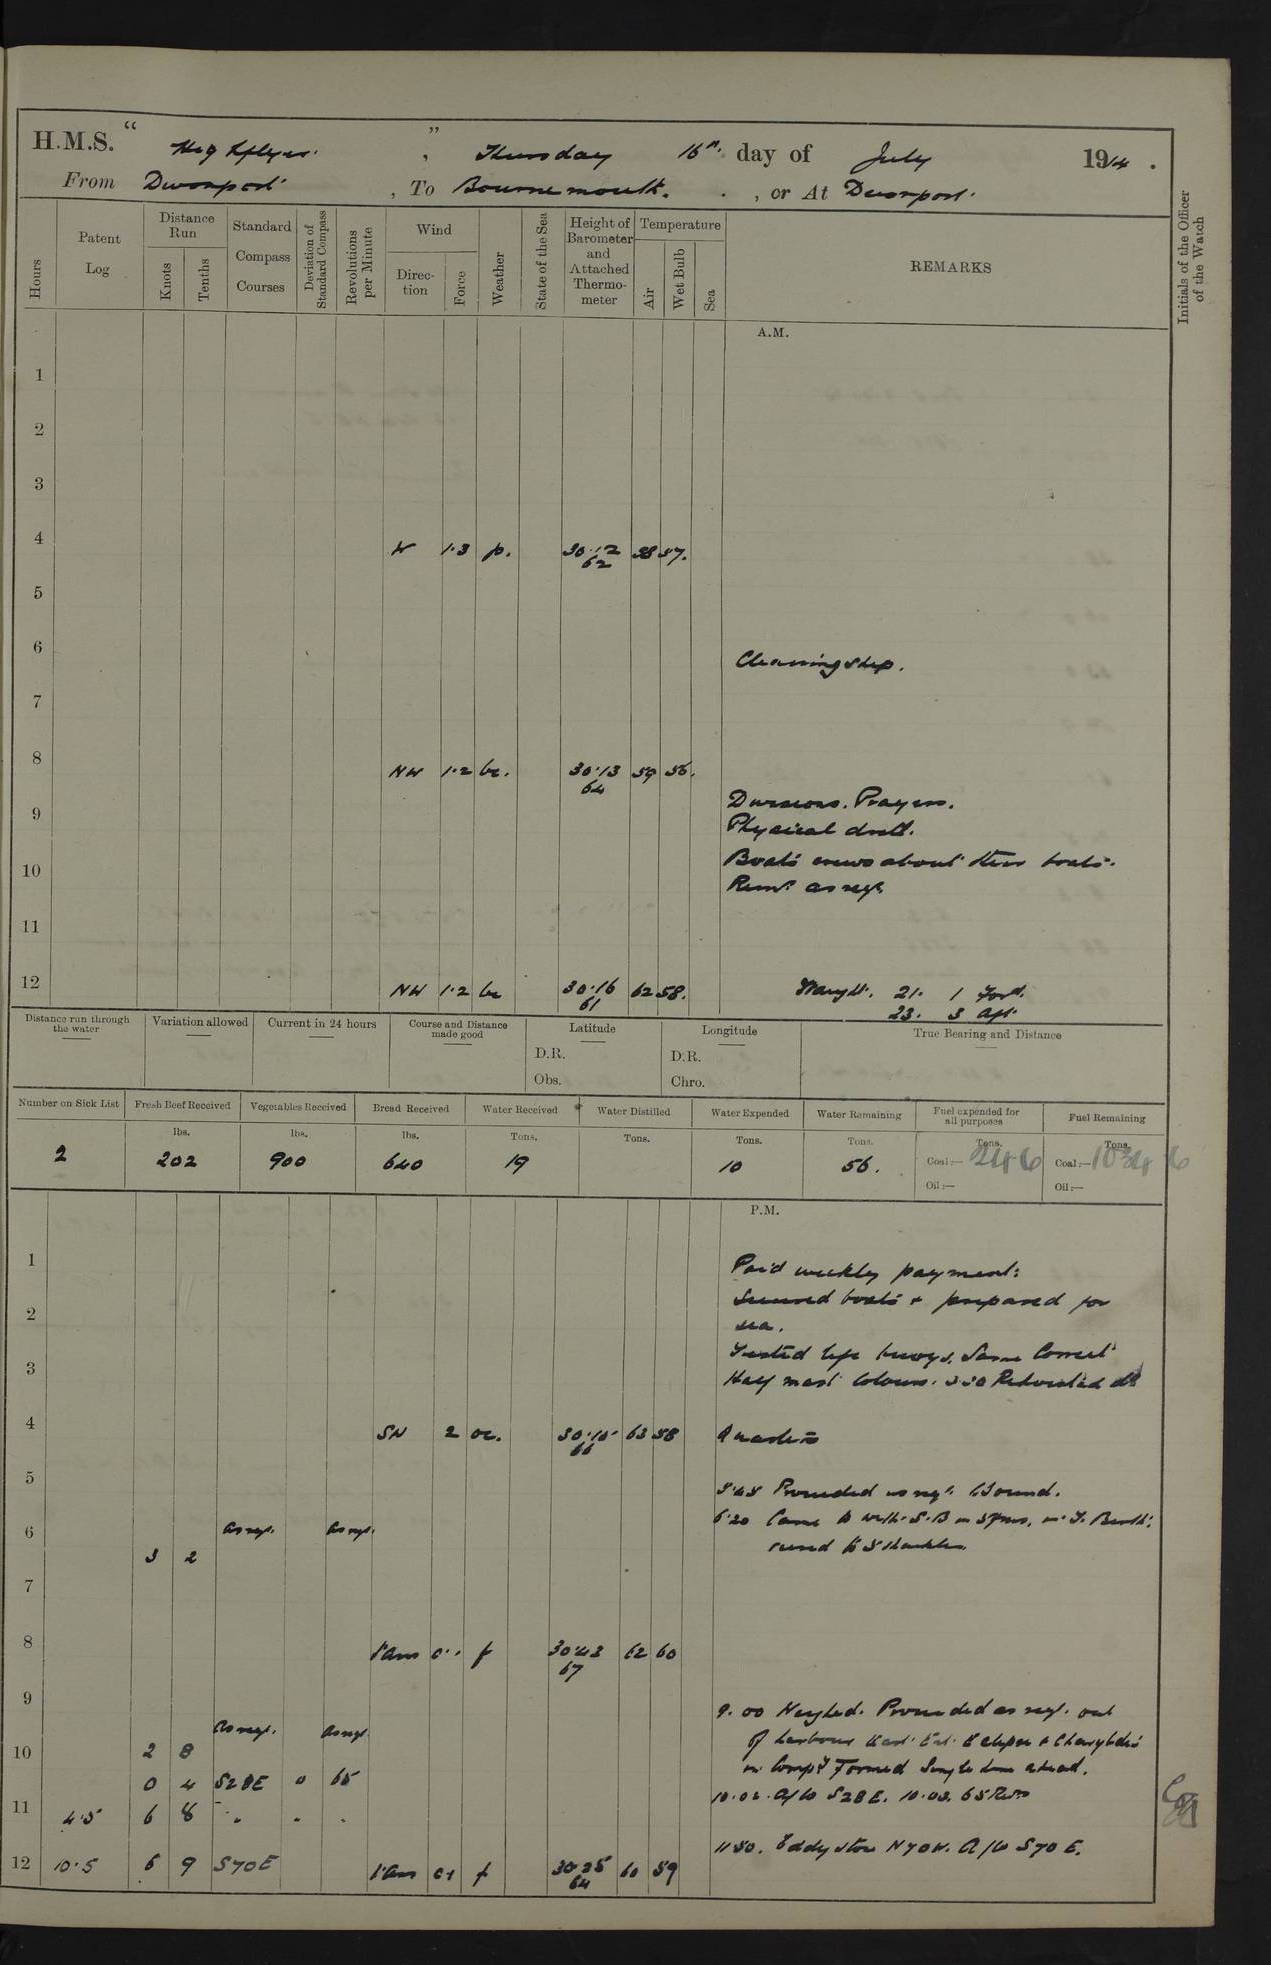 H.M.S. " Highflyer. " , Thursday 16th. day of July 1914 .
From Devonport , To Bournemouth. , or At Devonport.
Hours
Patent Log
Distance Run
Knots
Tenths
Standard Compass Courses
Deviation of Standard Compass
Revolutions per Minute
Wind
Direction
Force
Weather
State of the Sea
Height of Barometer and Attached Thermometer
Temperature
Air
Wet Bulb
Sea
REMARKS
Initials of the Officer of the Watch
A.M.
1
2
3
4 W 1·3 p. 30·12 62 58 57.
5
6 Cleaning ship.
7
8 NW 1·2 bc. 30·13 64 59 56.
Divisions. Prayers.
9
Physical drill.
Boats crews about their boats.
10
Remr. as req.
11
12 NW 1·2 bc 30·16 61 62 58. Draught. 21. 1 Ford.
23. 3 Aft.
Distance run through the water
Variation allowed
Current in 24 hours
Course and Distance made good
Latitude
D.R.
Obs.
Longitude
D.R.
Chro.
True Bearing and Distance
Number on Sick List
2
Fresh Beef Received
lbs.
202
Vegetables Received
lbs.
900
Bread Received
lbs.
640
Water Received
Tons.
19
Water Distilled
Tons.
Water Expended
Tons.
10
Water Remaining
Tons.
56.
Fuel expended for all purposes
Tons.
Coal:—
Oil:—
Fuel Remaining
Tons.
Coal:—
Oil:—
P.M.
1
Paid weekly payment.
Secured boats & prepared for
2
sea.
Tested life buoys. Same Correct
3
Half mast Colours. 3.30 Rehoisted do
4 SW 2 oc. 30·15 66 63 58 Quarters
5
5·45 Proceeded as req. Sound.
6 as req. as req. 6·20 Came to with S.B in 5 fms.
3 2 veered to 5 shackles
7
8 Vars 0·1 f 30·43 67 62 60
9
9.00 Weighed. Proceeded as req. out
as req. as req. of harbour Eclipse & Charybdis
10 2 8
in Compy. Formed Single line ahead.
0 4 S28E 0 65 10·02. A/Co S28E. 10.03. 65 Revs
11 4·5 6 8 " . .
11 50. Eddystone N70W. A/Co S70E.
12 10·5 6 9 S70E Vars 0·1 f 30·25 64 60 59